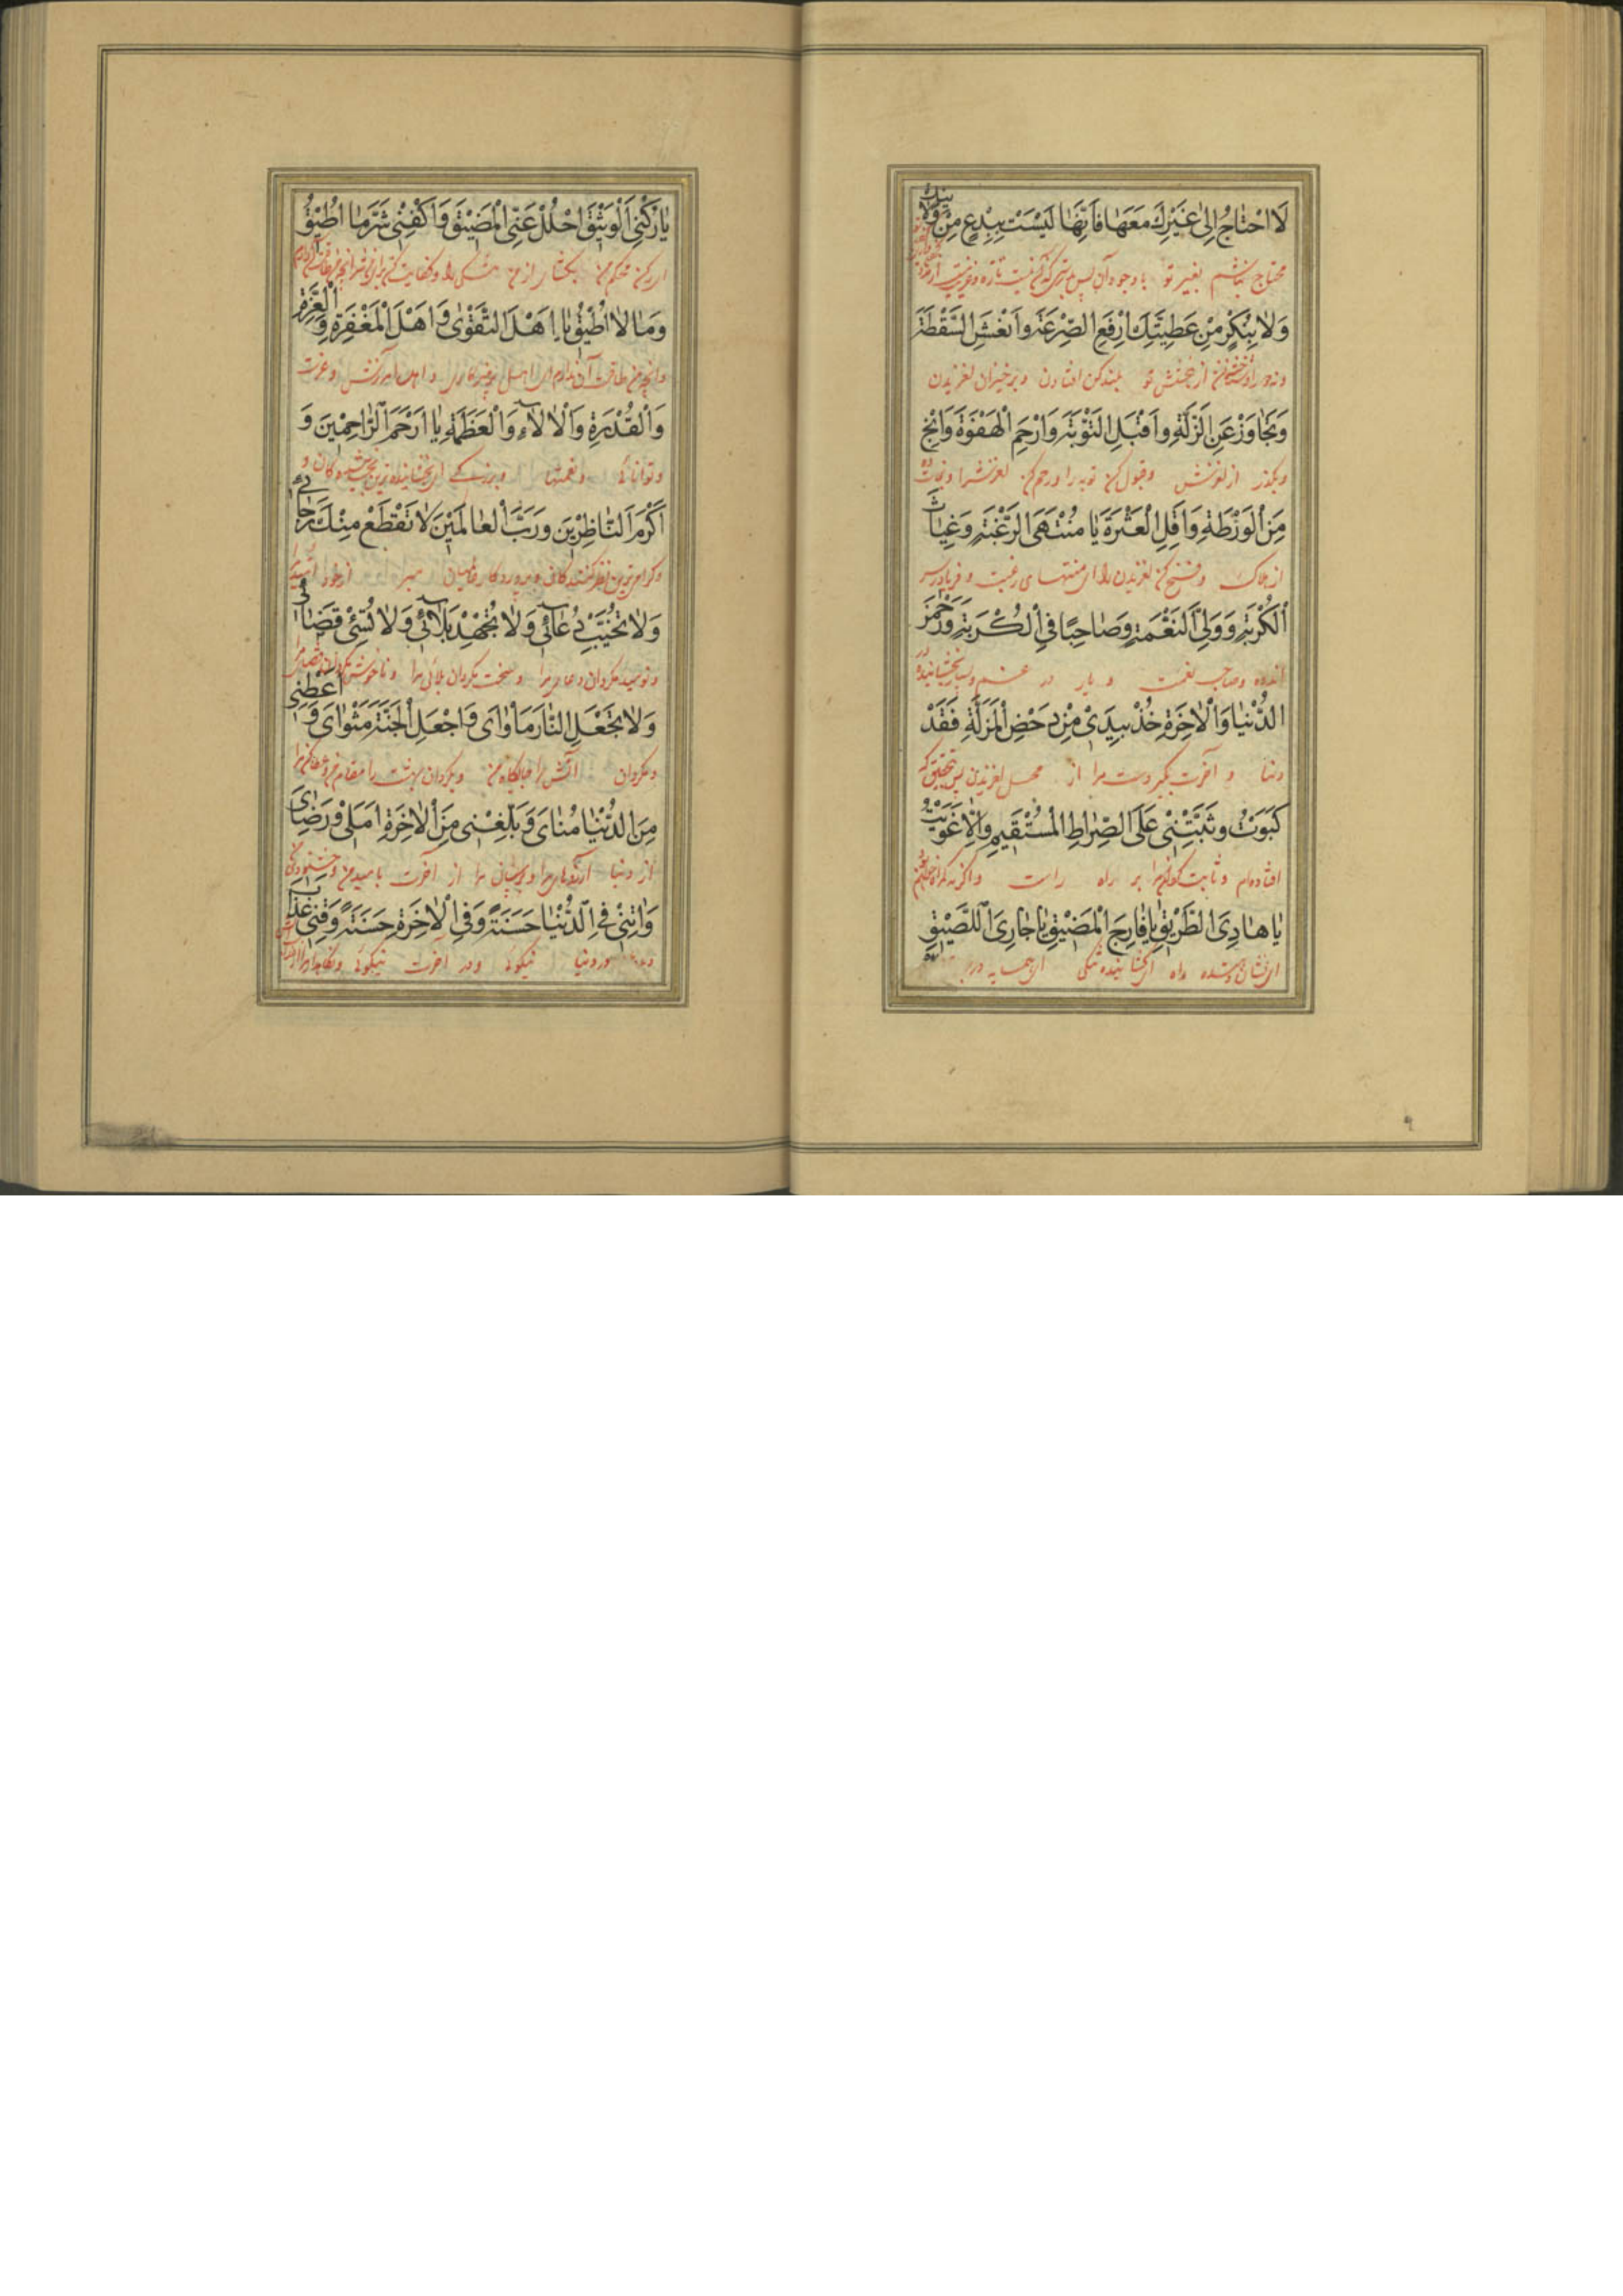 لَا احْتٰاجُ اِلىٰ غَيْرِكَ مَعَهٰا فَاِنَّهٰا لَيْسَتْ بِبِدْعٍ مِنْ وِلٰايَتِكَ
محتاج نباشم بغیر تو با وجود آن پس بدرستی که آن نیست تازه
وَلٰا بِنُكْرٍ مِنْ عَطِيَّتِكَ اِرْفَعِ الصَّرْعَةَ وَاَنْعِشِ السَّقْطَةَ
از بخشش تو بلند کن افتادن و برخیزان لغزیدن
وَتَجٰاوَزْ عَنِ الزَّلَّةِ وَاقْبَلِ التَّوْبَةَ وَارْحَمِ الْهَفْوَةَ وَانْجِ
و بگذر از لغزش و قبول کن توبه را و رحم کن لغزش را و نجات ده
مِنَ الْوَرْطَةِ وَاَقِلِ الْعَثْرَةَ يٰا مُنْتَهَى الرَّغْبَةِ وَغِيٰاثَ
از هلاک و فسخ کن لغزیدن را ای منتهای رغبت و فریادرس
الْكُرْبَةِ وَوَلِيَّ النِّعْمَةِ وَصٰاحِبًا فِي الْكُرْبَةِ وَرَحْمٰنَ
اندوه و صاحب نعمت و یار در غم و بخشاینده
الدُّنْيٰا وَالْاٰخِرَةِ خُذْ بِيَدِيْ مِنْ دَحْضِ الْمَزَلَّةِ فَقَدْ
دنیا و آخرت بگیر دست مرا از محل لغزیدن پس بتحقیق که
كَبَوْتُ وَثَبِّتْنِيْ عَلَى الصِّرٰاطِ الْمُسْتَقِيْمِ وَاِلّٰا غَوَيْتُ
افتاده‌ام و ثابت گردان مرا بر راه راست و اگر نه گمراه
يٰا هٰادِيَ الطَّرِيْقِ يٰا فٰارِجَ الْمَضِيْقِ يٰا جٰارِيَ اللَّصِيْقِ
ای نشان دهنده راه ای گشاینده تنگی ای همسایه
يٰا رُكْنِيَ الْوَثِيْقَ احْلُلْ عَنِّى الْمَضِيْقَ وَاكْفِنِيْ شَرَّ مٰا اُطِيْقُ
ای رکن محکم من بگشا از من تنگی را و کفایت کن
وَمٰا لٰا اُطِيْقُ يٰا اَهْلَ التَّقْوٰى وَاَهْلَ الْمَغْفِرَةِ وَالْعِزَّةِ
و آنچه من طاقت آن ندارم ای اهل پرهیزکاری و اهل آمرزش و عزت
وَالْقُدْرَةِ وَالْاٰلٰاءِ وَالْعَظَمَةِ يٰا اَرْحَمَ الرّٰاحِمِيْنَ وَ
و توانائی و نعمتها و بزرگی ای بخشاینده‌ترین بخشندگان و
اَكْرَمَ النّٰاظِرِيْنَ وَرَبَّ الْعٰالَمِيْنَ لٰا تَقْطَعْ مِنْكَ رَجٰائِيْ
و گرامی‌ترین نظر کنندگان و پروردگار جهانیان مبر از خود امید مرا
وَلٰا تُخَيِّبْ دُعٰائِيْ وَلٰا تُجْهِدْ بَلٰائِيْ وَلٰا تُسِئْ قَضٰائِيْ
و نومید مگردان دعای مرا و سخت مگردان بلای مرا و ناخوش مگردان قضای مرا
وَلٰا تَجْعَلِ النّٰارَ مَأْوٰايَ وَاجْعَلِ الْجَنَّةَ مَثْوٰايَ وَاَعْطِنِيْ
و مگردان آتش را جایگاه من و بگردان بهشت را مقام من و عطا کن مرا
مِنَ الدُّنْيٰا مُنٰايَ وَبَلِّغْنِيْ مِنَ الْاٰخِرَةِ اَمَلِيْ وَرِضٰايَ
از دنیا آرزوهای مرا و برسان مرا از آخرت بامید من و خشنودی
وَاٰتِنِيْ فِي الدُّنْيٰا حَسَنَةً وَفِي الْاٰخِرَةِ حَسَنَةً وَقِنِيْ عَذٰابَ
در دنیا نیکوئی و در آخرت نیکوئی و نگاهدار مرا از